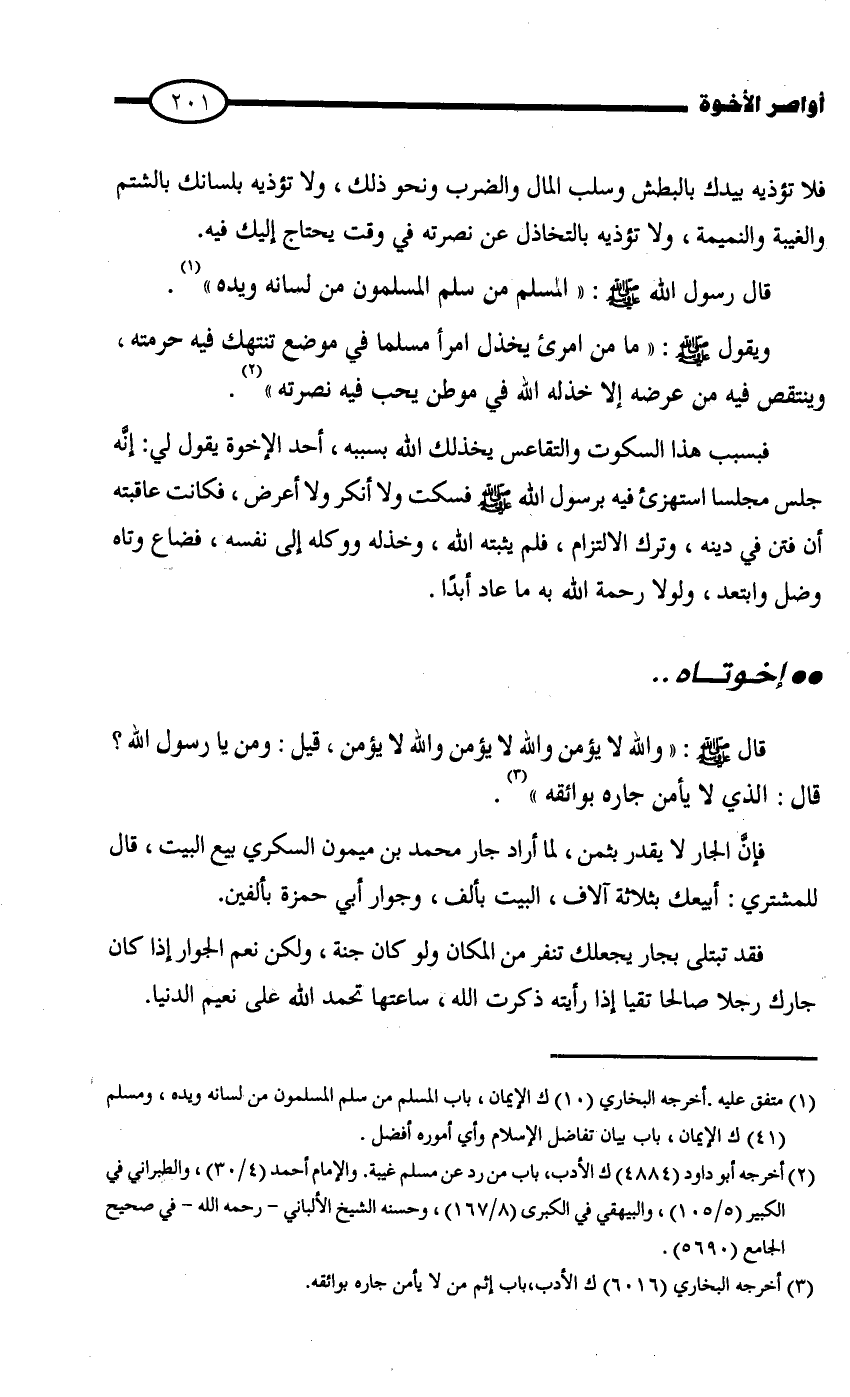 أواصر الأخوة ٢٠١
فلا تؤذيه بيدك بالبطش وسلب المال والضرب ونحو ذلك ، ولا تؤذيه بلسانك بالشتم
والغيبة والنميمة ، ولا تؤذيه بالتخاذل عن نصرته في وقت يحتاج إليك فيه.
قال رسول الله ﷺ : « المسلم من سلم المسلمون من لسانه ويده »(١) .
ويقول ﷺ : « ما من امرئ يخذل امرأ مسلما في موضع تنتهك فيه حرمته ،
وينتقص فيه من عرضه إلا خذله الله في موطن يحب فيه نصرته »(٢) .
فبسبب هذا السكوت والتقاعس يخذلك الله بسببه ، أحد الإخوة يقول لي: إنَّه
جلس مجلسا استهزئ فيه برسول الله ﷺ فسكت ولا أنكر ولا أعرض ، فكانت عاقبته
أن فتن في دينه ، وترك الالتزام ، فلم يثبته الله ، وخذله ووكله إلى نفسه ، فضاع وتاه
وضل وابتعد ، ولولا رحمة الله به ما عاد أبدًا .
●● إخـوتــاه ..
قال ﷺ : « والله لا يؤمن والله لا يؤمن والله لا يؤمن ، قيل : ومن يا رسول الله ؟
قال : الذي لا يأمن جاره بوائقه »(٣) .
فإنَّ الجار لا يقدر بثمن ، لما أراد جار محمد بن ميمون السكري بيع البيت ، قال
للمشتري : أبيعك بثلاثة آلاف ، البيت بألف ، وجوار أبي حمزة بألفين.
فقد تبتلى بجار يجعلك تنفر من المكان ولو كان جنة ، ولكن نعم الجوار إذا كان
جارك رجلا صالحا تقيا إذا رأيته ذكرت الله ، ساعتها تحمد الله على نعيم الدنيا.
(١) متفق عليه .أخرجه البخاري (١٠) ك الإيمان ، باب المسلم من سلم المسلمون من لسانه ويده ، ومسلم
(٤١) ك الإيمان ، باب بيان تفاضل الإسلام وأي أموره أفضل .
(٢) أخرجه أبو داود (٤٨٨٤) ك الأدب، باب من رد عن مسلم غيبة. والإمام أحمد (٣٠/٤) ، والطبراني في
الكبير (١٠٥/٥) ، والبيهقي في الكبرى (١٦٧/٨) ، وحسنه الشيخ الألباني - رحمه الله - في صحيح
الجامع (٥٦٩٠) .
(٣) أخرجه البخاري (٦٠١٦) ك الأدب،باب إثم من لا يأمن جاره بوائقه.